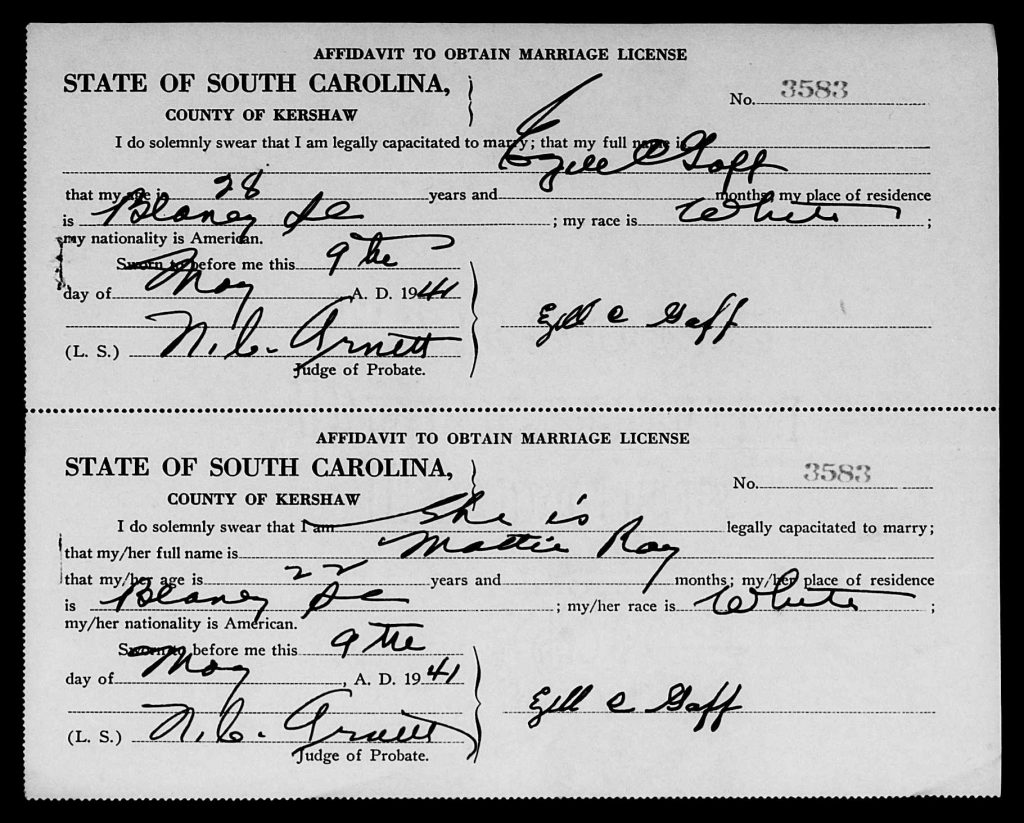 AFFIDAVIT TO OBTAIN MARRIAGE LICENSE
STATE OF SOUTH CAROLINA,
No. 3583
COUNTY OF KERSHAW
I do solemnly swear that I am legally capacitated to marry; that my full name is
C Goff
that my age is 28 years and months; my place of residence
is Blaney SC ; my race is White ;
my nationality is American.
Sworn to before me this 9 the
day of May A. D. 1941
C Goff
(L. S.) N. C. Arnett
Judge of Probate.
AFFIDAVIT TO OBTAIN MARRIAGE LICENSE
STATE OF SOUTH CAROLINA,
No. 3583
COUNTY OF KERSHAW
I do solemnly swear that I am She is legally capacitated to marry;
that my/her full name is Mattie Ray
that my/her age is 22 years and months; my/her place of residence
is Blaney SC ; my/her race is White ;
my/her nationality is American.
Sworn to before me this 9 the
day of May , A. D. 1941
C Goff
(L. S.) N. C. Arnett
Judge of Probate.